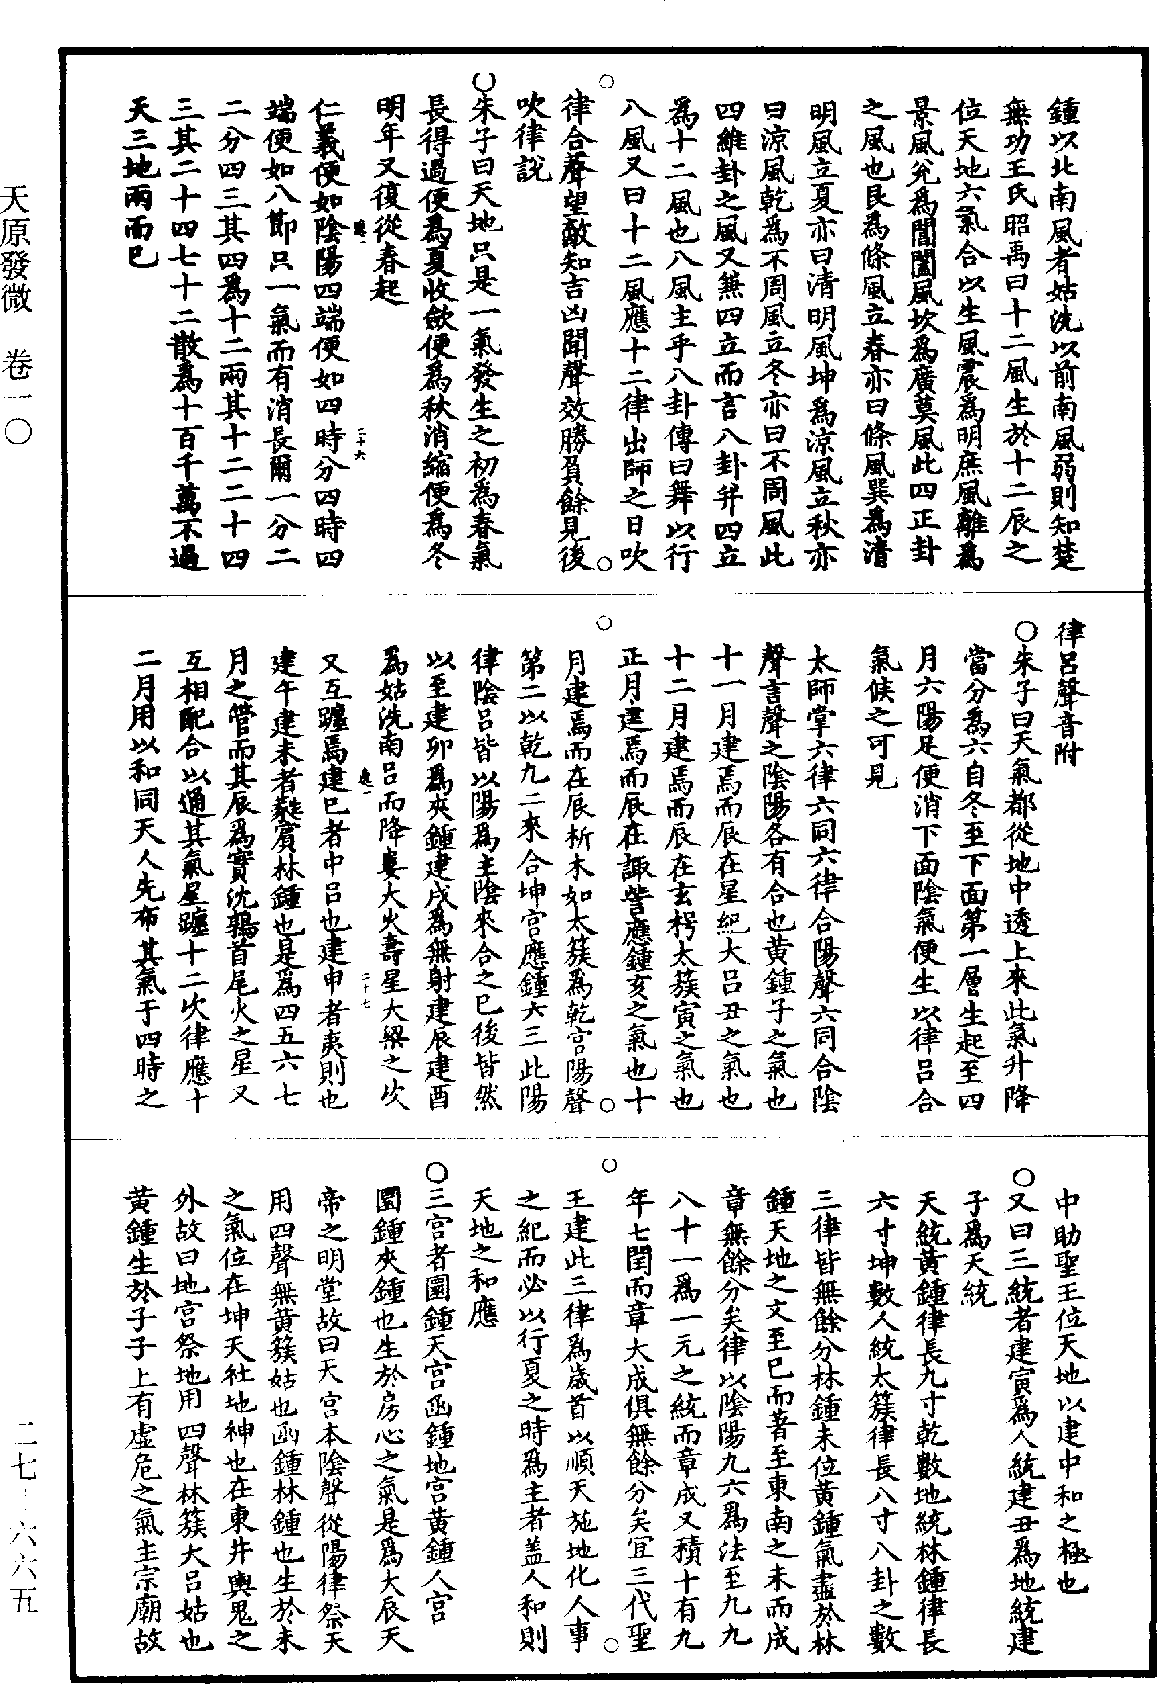 鍾以北南風者姑洗以前南風弱則知楚
無功王氏昭禹曰十二風生於十二辰之
位天地六氣合以生風震爲明庶風離爲
景風兊爲閶闔風坎爲廣莫風此四正卦
之風也艮爲條風立春亦曰條風巽爲清
明風立夏亦曰清明風坤爲涼風立秋亦
曰涼風乾爲不周風立冬亦曰不周風此
四維卦之風又兼四立而言八卦并四立
爲十二風也八風主乎八卦傳曰舞以行
八風又曰十二風應十二律出師之日吹
律合聲望敵知吉凶聞聲效勝負餘見後
吹律説
○朱子曰天地只是一氣發生之初爲春氣
長得過便爲夏收斂便爲秋消縮便爲冬
明年又復從春起
仁義便如陰陽四端便如四時分四時四
端便如八節只一氣而有消長爾一分二
二分四三其四爲十二兩其十二二十四
三其二十四七十二散爲十百千萬不過
天三地兩而已
二十六
律吕聲音附
○朱子曰天氣都從地中透上來此氣升降
當分爲六自冬至下面第一層生起至四
月六陽足便消下面陰氣便生以律吕合
氣候之可見
太師掌六律六同六律合陽聲六同合陰
聲言聲之陰陽各有合也黄鍾子之氣也
十一月建焉而辰在星紀大吕丑之氣也
十二月建焉而辰在玄枵太簇寅之氣也
正月建焉而辰在諏訾應鍾亥之氣也十
月建焉而在辰析木如太簇爲乾宫陽聲
第二以乾九二來合坤宫應鍾六三此陽
律陰吕皆以陽爲主陰來合之已後皆然
以至建卯爲夾鍾建戌爲無射建辰建酉
爲姑洗南吕而降婁大火壽星大梁之次
又互躔焉建巳者中吕也建申者夷則也
建午建未者蕤賓林鍾也是爲四五六七
月之管而其辰爲實沈鶉首尾火之星又
互相配合以通其氣星躔十二次律應十
二月用以和同天人先布其氣于四時之
二十七
中助聖王位天地以建中和之極也
○又曰三統者建寅爲人統建丑爲地統建
子爲天統
天統黄鍾律長九寸乾數地統林鍾律長
六寸坤數人統太簇律長八寸八卦之數
三律皆無餘分林鍾未位黄鍾氣盡於林
鍾天地之文至巳而著至東南之未而成
章無餘分矣律以陰陽九六爲法至九九
八十一爲一元之統而章成又積十有九
年七閏而章大成俱無餘分矣宜三代聖
王建此三律爲歲首以順天施地化人事
之紀而必以行夏之時爲主者蓋人和則
天地之和應
○三宫者圜鍾天宫函鍾地宫黄鍾人宫
圜鍾夾鍾也生於房心之氣是爲大辰天
帝之明堂故曰天宫本陰聲從陽律祭天
用四聲無黄簇姑也函鍾林鍾也生於未
之氣位在坤天社地神也在東井輿鬼之
外故曰地宫祭地用四聲林簇大吕姑也
黄鍾生於子子上有虚危之氣主宗廟故
天原發微　卷一〇
二七-六六五